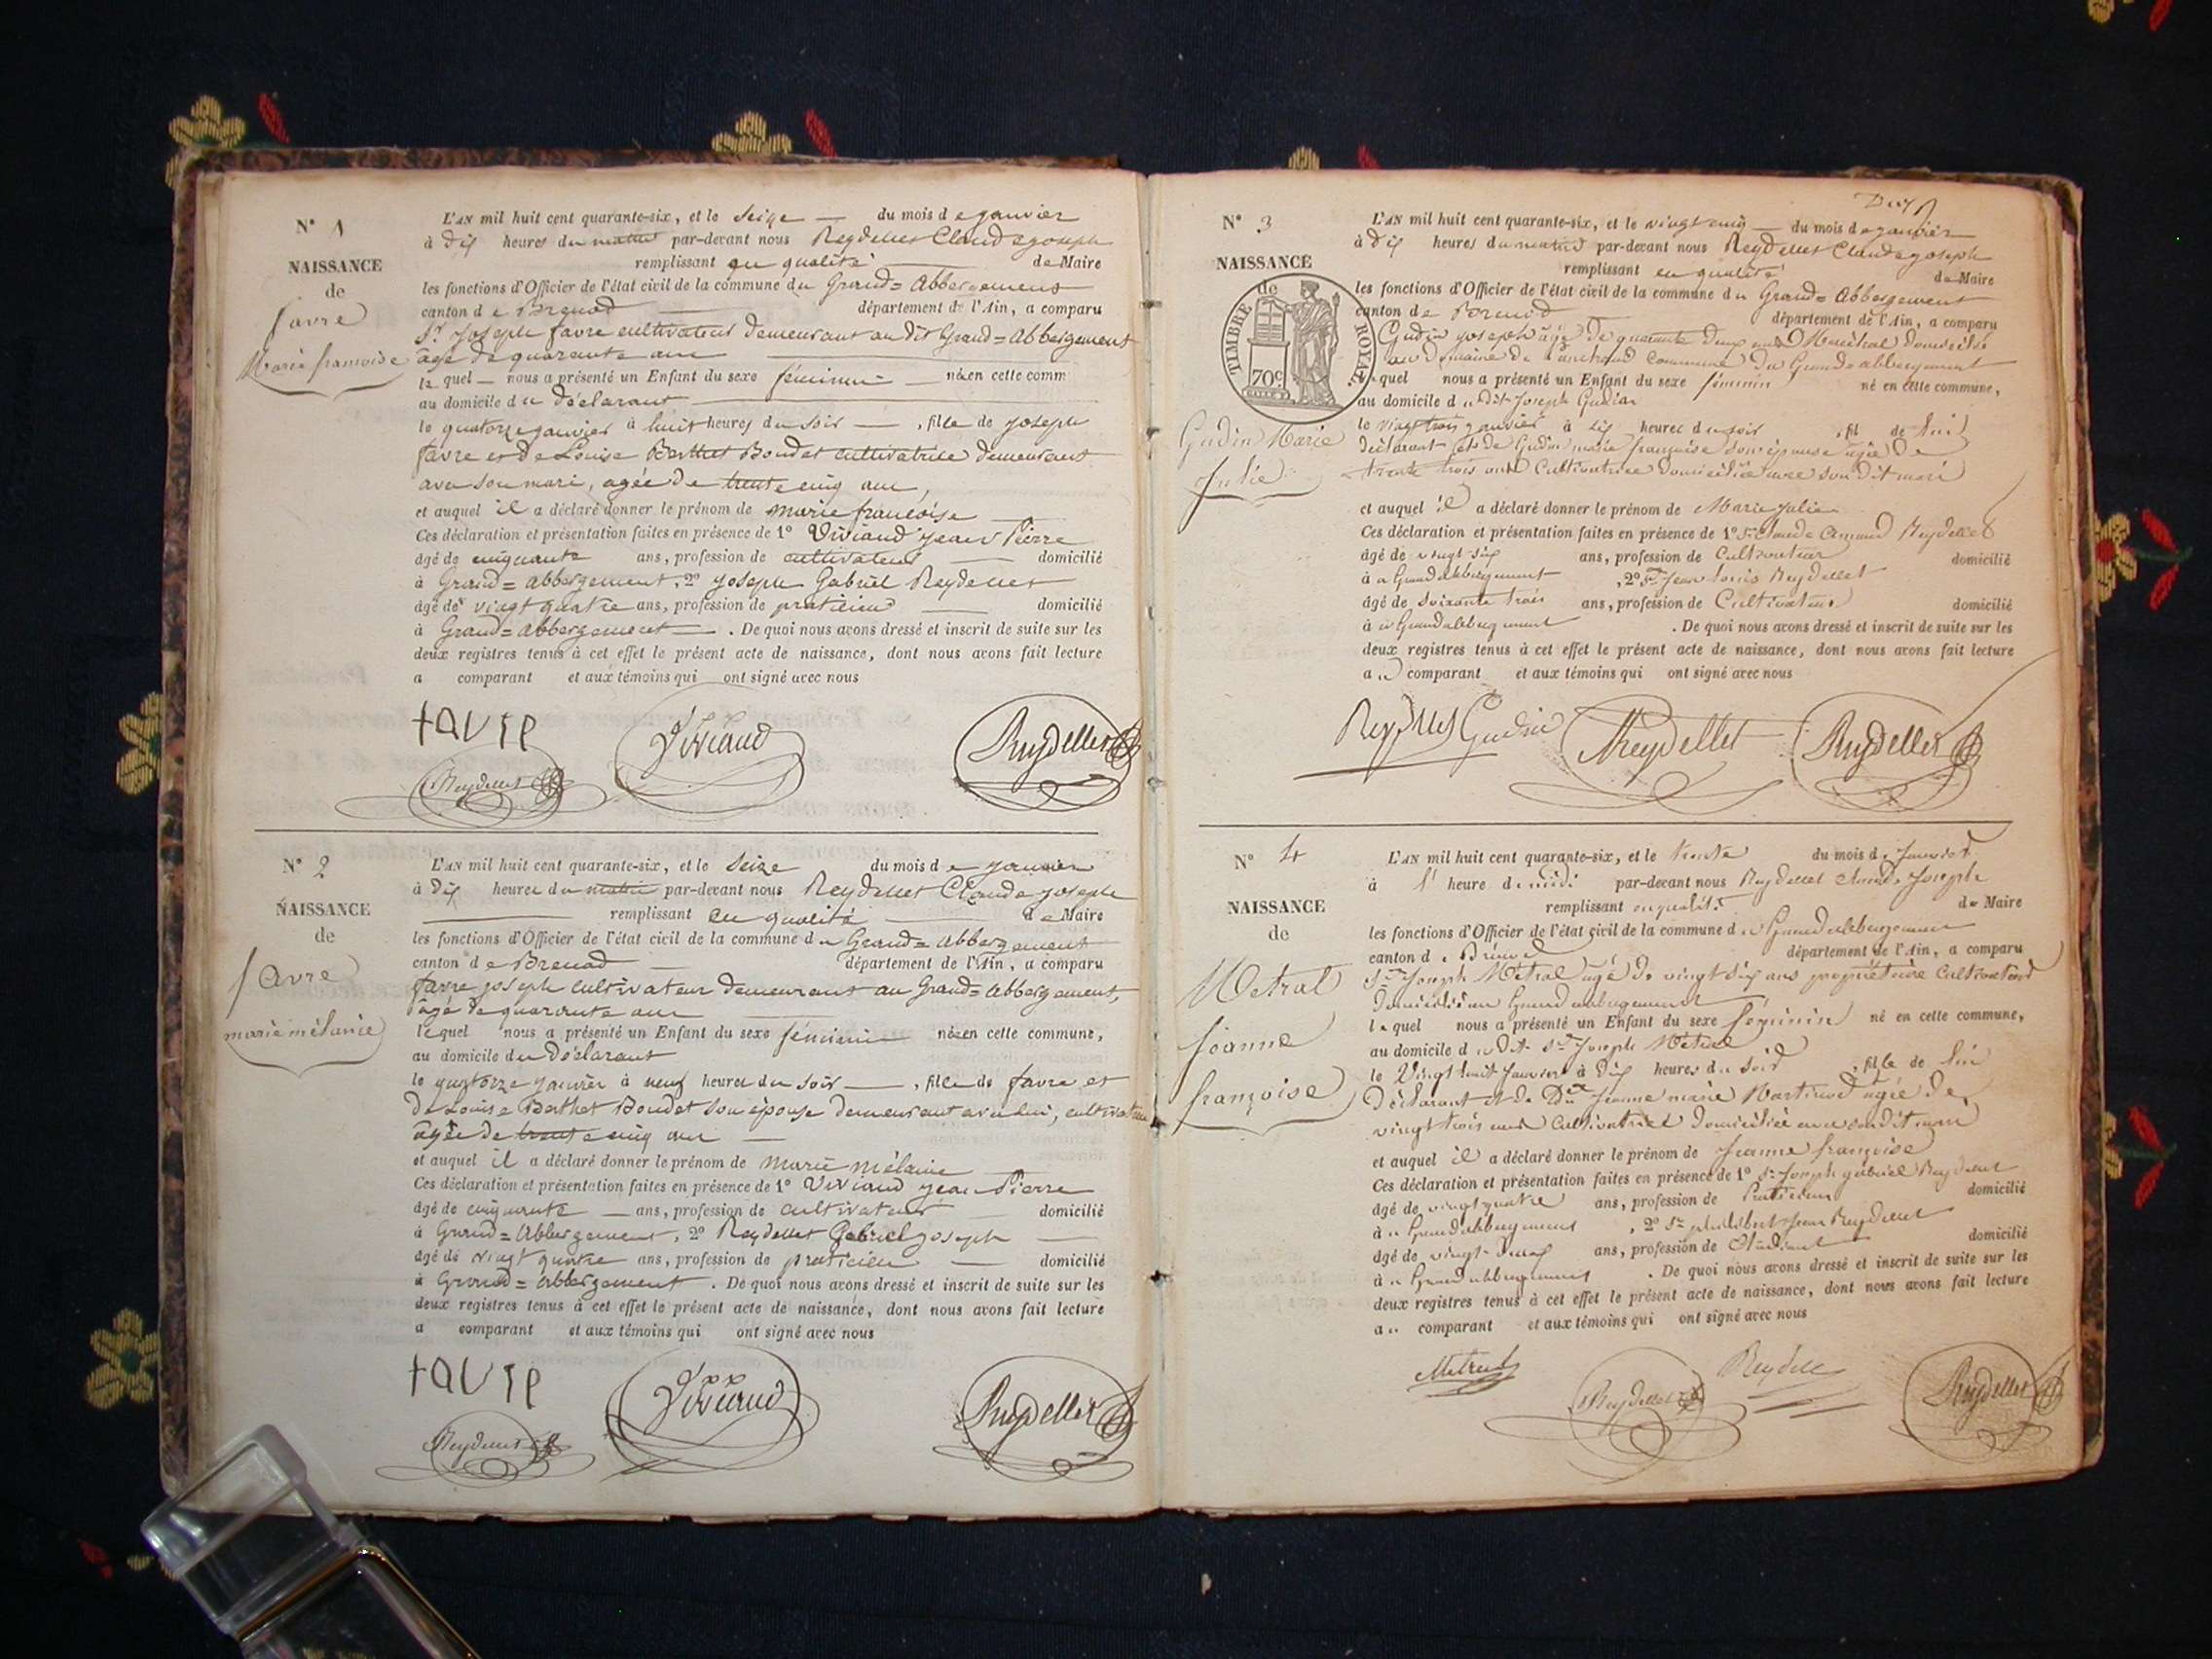 N° 1
NAISSANCE
de
favre
Marie françoise
L'AN mil huit cent quarante-six, et le Seize du mois de janvier
à dix heures du matin par-devant nous Reydellet Claude joseph
remplissant en qualité de Maire
les fonctions d'Officier de l'état civil de la commune du Grand=Abbergement
canton de Brenod département de l'Ain, a comparu
Sr joseph favre cultivateur demeurant au dit Grand=Abbergement
âgé de quarante ans
lequel nous a présenté un Enfant du sexe féminin née en cette comm
au domicile du déclarant
le quatorze janvier à huit heures du soir, fille de joseph
favre et de Louise Berthet Boudet cultivatrice demeurant
avec son mari, agée de trente cinq ans,
et auquel il a déclaré donner le prénom de marie françoise
Ces déclaration et présentation faites en présence de 1° Viviand jean Pierre
âgé de cinquante ans, profession de cultivateur domicilié
à Grand=abbergement, 2° joseph Gabriel Reydellet
âgé de vingt quatre ans, profession de praticien domicilié
à Grand=abbergement. De quoi nous avons dressé et inscrit de suite sur les
deux registres tenus à cet effet le présent acte de naissance, dont nous avons fait lecture
a comparant et aux témoins qui ont signé avec nous
favre Viviand Reydellet
Reydellet
N° 2
NAISSANCE
de
favre
marie mélanie
L'AN mil huit cent quarante-six, et le Seize du mois de janvier
à dix heures du matin par-devant nous Reydellet Claude joseph
remplissant en qualité de Maire
les fonctions d'Officier de l'état civil de la commune du Grand=abbergement
canton de Brenod département de l'Ain, a comparu
favre joseph cultivateur demeurant au Grand=abbergement,
âgé de quarante ans
lequel nous a présenté un Enfant du sexe féminin née en cette commune,
au domicile du déclarant
le quatorze janvier à neuf heures du soir, fille de favre et
de Louise Berthet Boudet son épouse demeurant avec lui, cultivatrice
âgée de trente cinq ans
et auquel il a déclaré donner le prénom de marie mélanie
Ces déclaration et présentation faites en présence de 1° Viviand jean Pierre
âgé de cinquante ans, profession de cultivateur domicilié
à Grand=Abbergement, 2° Reydellet Gabriel joseph
âgé de vingt quatre ans, profession de praticien domicilié
à Grand=abbergement. De quoi nous avons dressé et inscrit de suite sur les
deux registres tenus à cet effet le présent acte de naissance, dont nous avons fait lecture
a comparant et aux témoins qui ont signé avec nous
favre Viviand Reydellet
Reydellet
N° 3
NAISSANCE
de
TIMBRE ROYAL
70c
Gudin Marie
Julie
L'AN mil huit cent quarante-six, et le vingt cinq du mois de janvier
à dix heures du matin par-devant nous Reydellet Claude joseph
remplissant en qualité de Maire
les fonctions d'Officier de l'état civil de la commune du Grand=Abbergement
canton de Brenod département de l'Ain, a comparu
Gudin joseph âgé de quarante deux ans Maréchal domicilié
au domaine de commune du Grand=abbergement
lequel nous a présenté un Enfant du sexe féminin né en cette commune,
au domicile du dit Joseph Gudin
le vingt trois janvier à six heures du soir, fil de lui
déclarant et de Gudin marie françoise son épouse agée de
trente trois ans Cultivatrice domiciliée avec son dit mari
et auquel il a déclaré donner le prénom de Marie Julie
Ces déclaration et présentation faites en présence de 1° Sr Claude Armand Reydellet
âgé de vingt six ans, profession de Cultivateur domicilié
à u Grand abbergement, 2° Sr Jean Louis Reydellet
âgé de soixante trois ans, profession de Cultivateur domicilié
à u Grand abbergement. De quoi nous avons dressé et inscrit de suite sur les
deux registres tenus à cet effet le présent acte de naissance, dont nous avons fait lecture
au comparant et aux témoins qui ont signé avec nous
Reydellet Gudin Reydellet Reydellet
N° 4
NAISSANCE
de
Metral
jeanne
françoise
L'AN mil huit cent quarante-six, et le trente du mois de Janvier
à l' heure de midi par-devant nous Reydellet Claude Joseph
remplissant en qualité de Maire
les fonctions d'Officier de l'état civil de la commune du Grand abbergement
canton de Brénod département de l'Ain, a comparu
Sr Joseph Métral agé de vingt six ans propriétaire Cultivateur
domicilié au Grand abbergement
lequel nous a présenté un Enfant du sexe féminin né en cette commune,
au domicile du dit Sr Joseph Métral
le Vingt huit Janvier à dix heures du soir, fille de lui
Déclarant et de Dme Jeanne marie Martinod agée de
vingt trois ans Cultivatrice domiciliée avec son dit mari
et auquel il a déclaré donner le prénom de Jeanne françoise
Ces déclaration et présentation faites en présence de 1° Sr Joseph gabriel Reydellet
âgé de vingt quatre ans, profession de Praticien domicilié
à u Grand abbergement, 2° Sr philibert Jean Reydellet
âgé de vingt ans, profession de Etudiant domicilié
à u Grand abbergement. De quoi nous avons dressé et inscrit de suite sur les
deux registres tenus à cet effet le présent acte de naissance, dont nous avons fait lecture
au comparant et aux témoins qui ont signé avec nous
Metral Reydellet Reydellet Reydellet